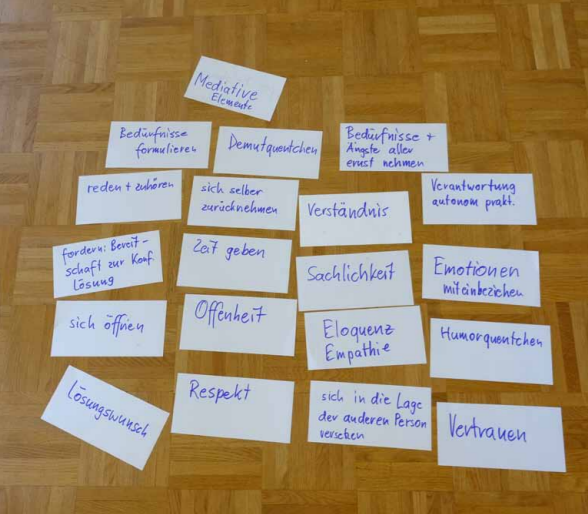 Mediative
Elemente
Bedürfnisse
formulieren
Demutquentchen
Bedürfnisse +
Ängste aller
ernst nehmen
reden + zuhören
sich selber
zurücknehmen
Verständnis
Verantwortung
autonom prakt.
fordern: Bereit-
schaft zur Konf.
Lösung
Zeit geben
Sachlichkeit
Emotionen
miteinbeziehen
sich öffnen
Offenheit
Eloquenz
Empathie
Humorquentchen
Lösungswunsch
Respekt
sich in die Lage
der anderen Person
versetzen
Vertrauen